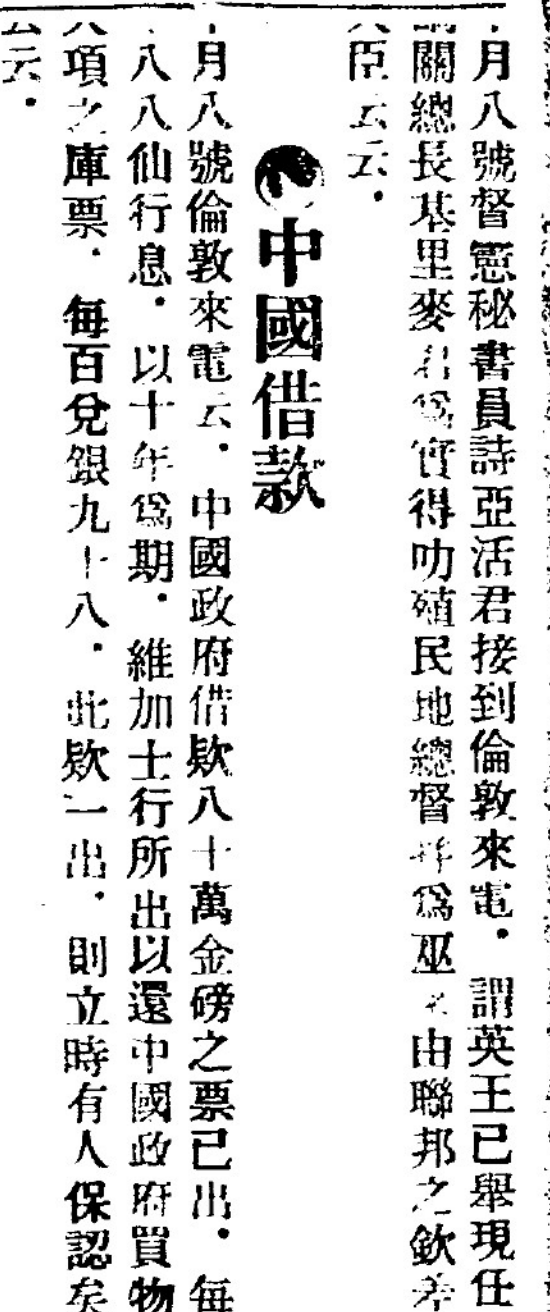 月八號督憲秘書員詩亞活君接到倫敦來電．謂英王已舉現任
關總長基里麥君爲實得叻殖民地總督幷爲巫由聯邦之欽差
臣云云．
中國借款
月八號倫敦來電云．中國政府借欵八十萬金磅之票已出．每
八八仙行息．以十年爲期．維加士行所出以還中國政府買物
項之庫票．每百兌銀九十八．此欵一出．則立時有人保認矣
云．